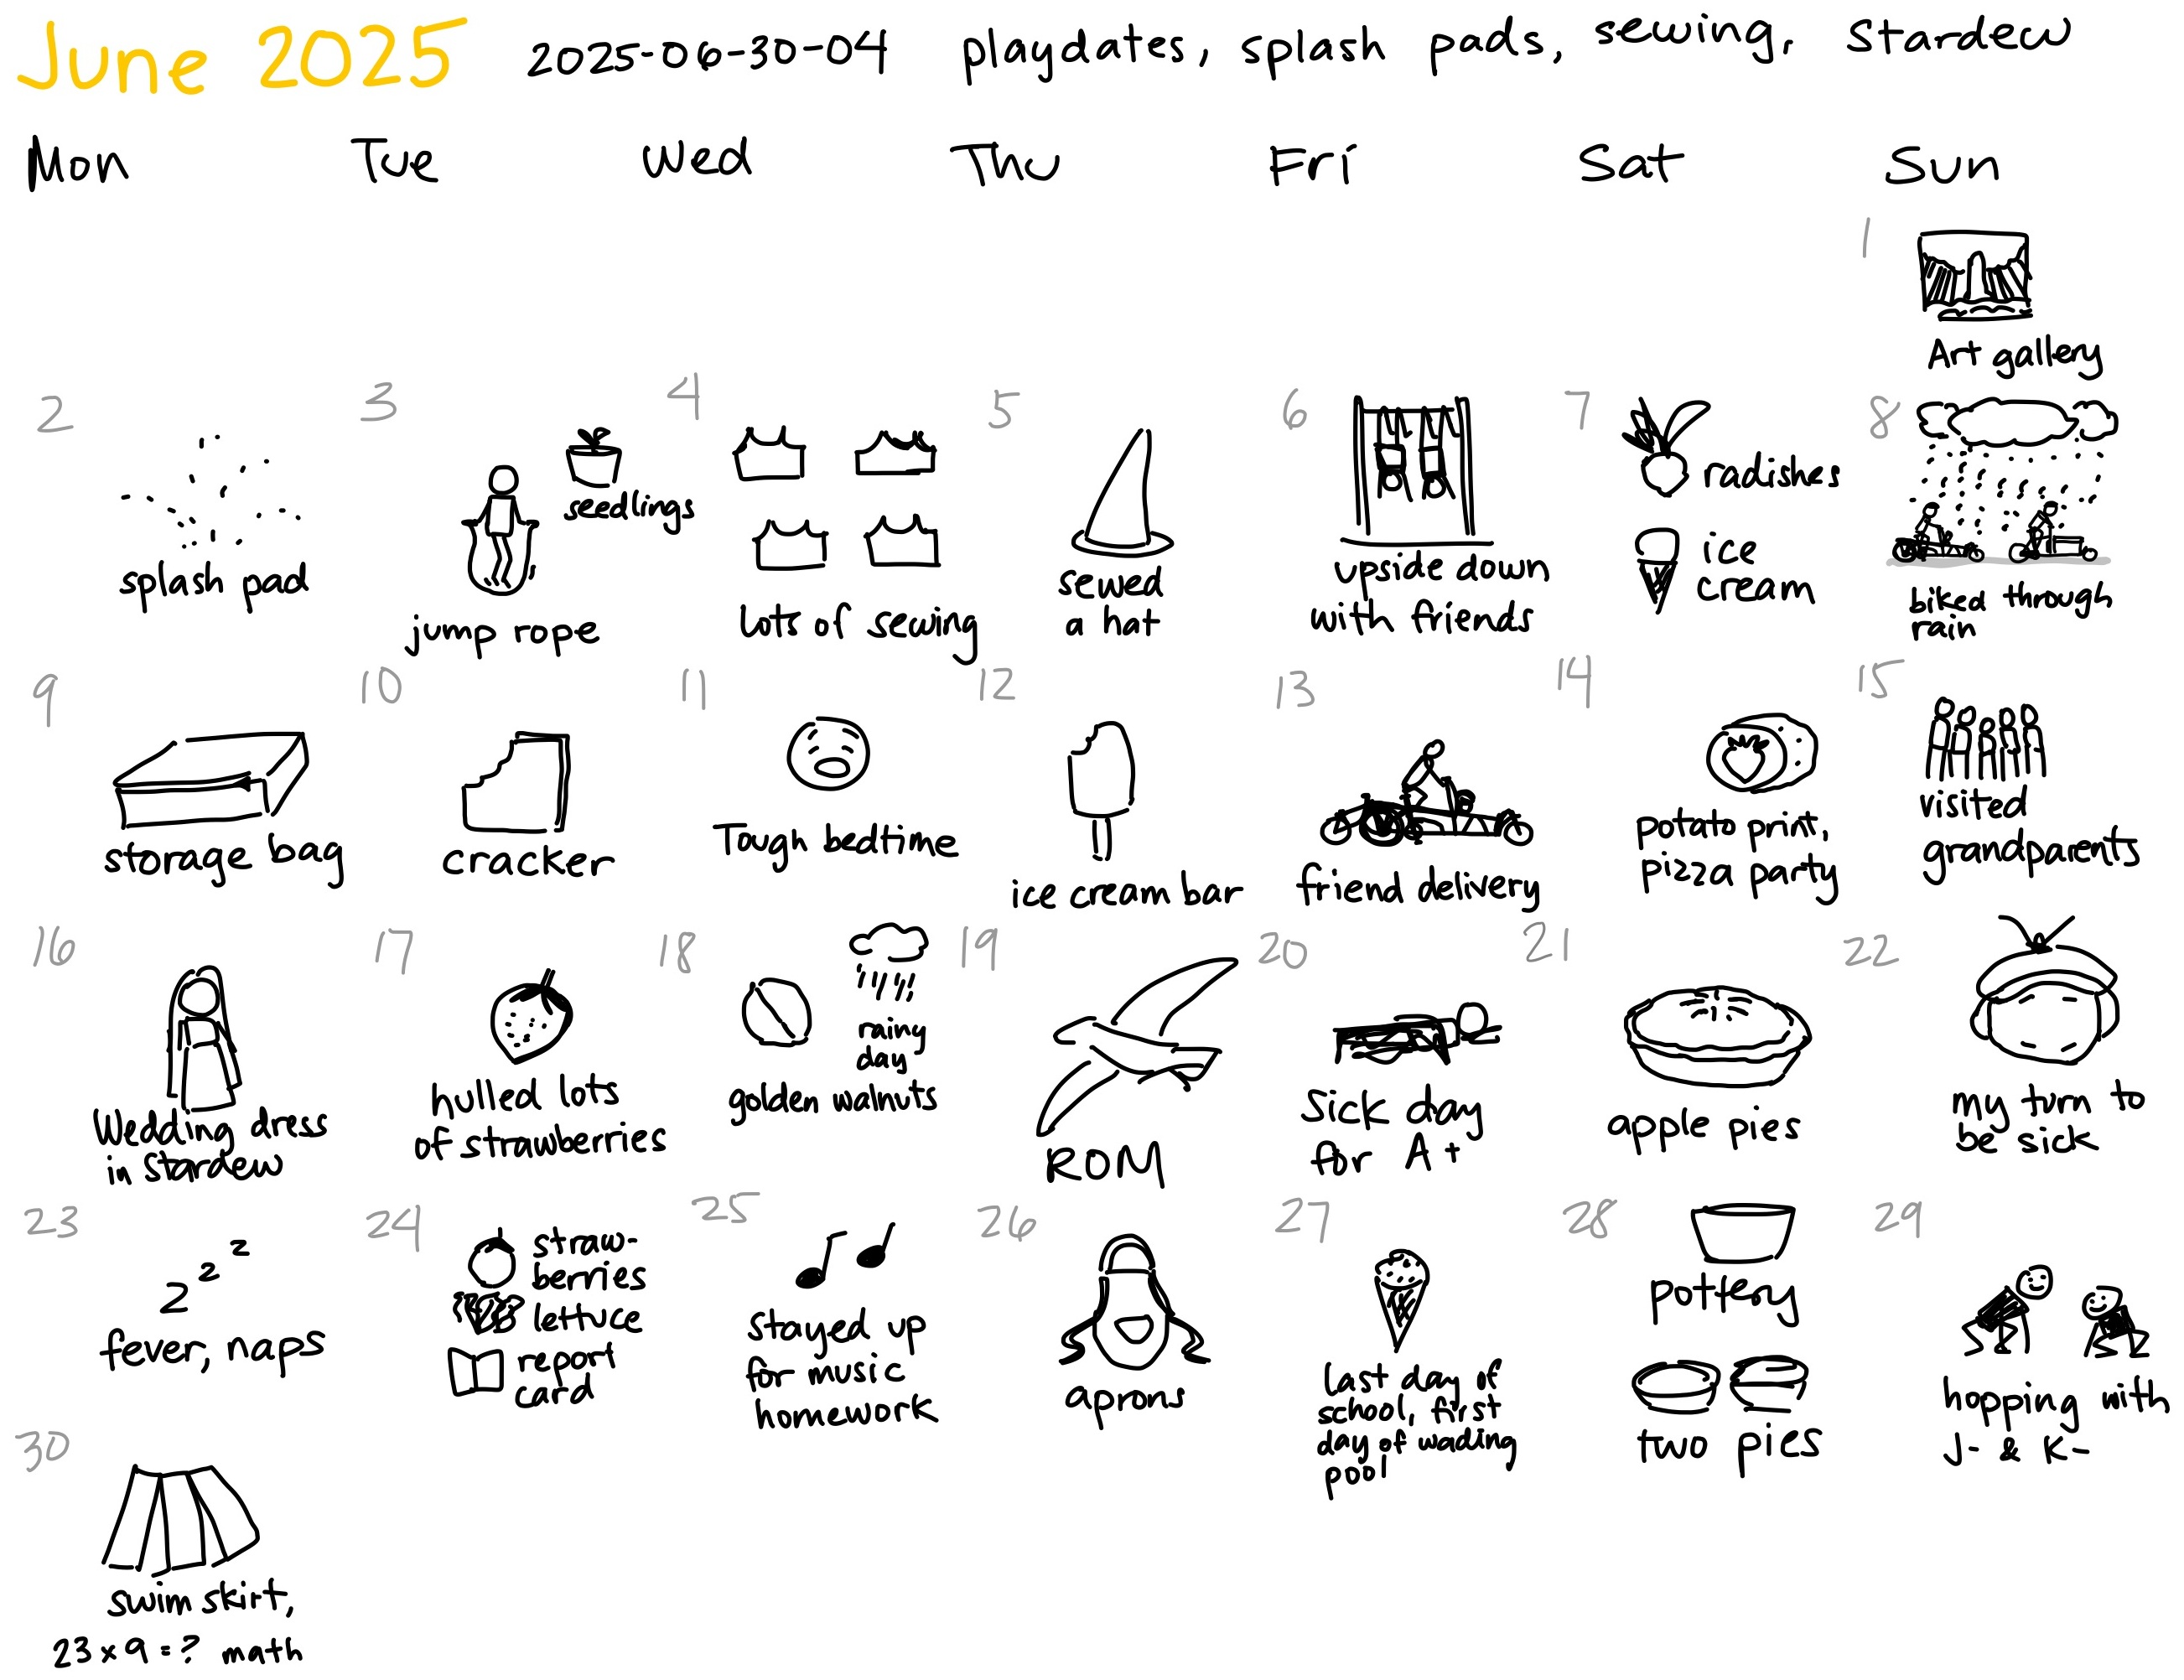 June 2025 2025-06-30-04 playdates, splash pads, sewing, Stardew
Mon Tue Wed Thu Fri Sat Sun
1
Art gallery
2
splash pad
3
seedlings
jump rope
4
lots of sewing
5
sewed
a hat
6
upside down
with friends
7
radishes
ice
cream
8
biked through
rain
9
storage bag
10
cracker
11
Tough bedtime
12
ice cream bar
13
friend delivery
14
potato print,
pizza party
15
visited
grandparents
16
Wedding dress
in Stardew
17
hulled lots
of strawberries
18
rainy
day
golden walnuts
19
ROM
20
Sick day
for A+
21
apple pies
22
my turn to
be sick
23
z z z
fever, naps
24
straw-
berries
lettuce
report
card
25
stayed up
for music
homework
26
aprons
27
last day of
school, first
day of wading
pool
28
pottery
two pies
29
hopping with
J- & K-
30
swim skirt,
23 x 9 = ? math